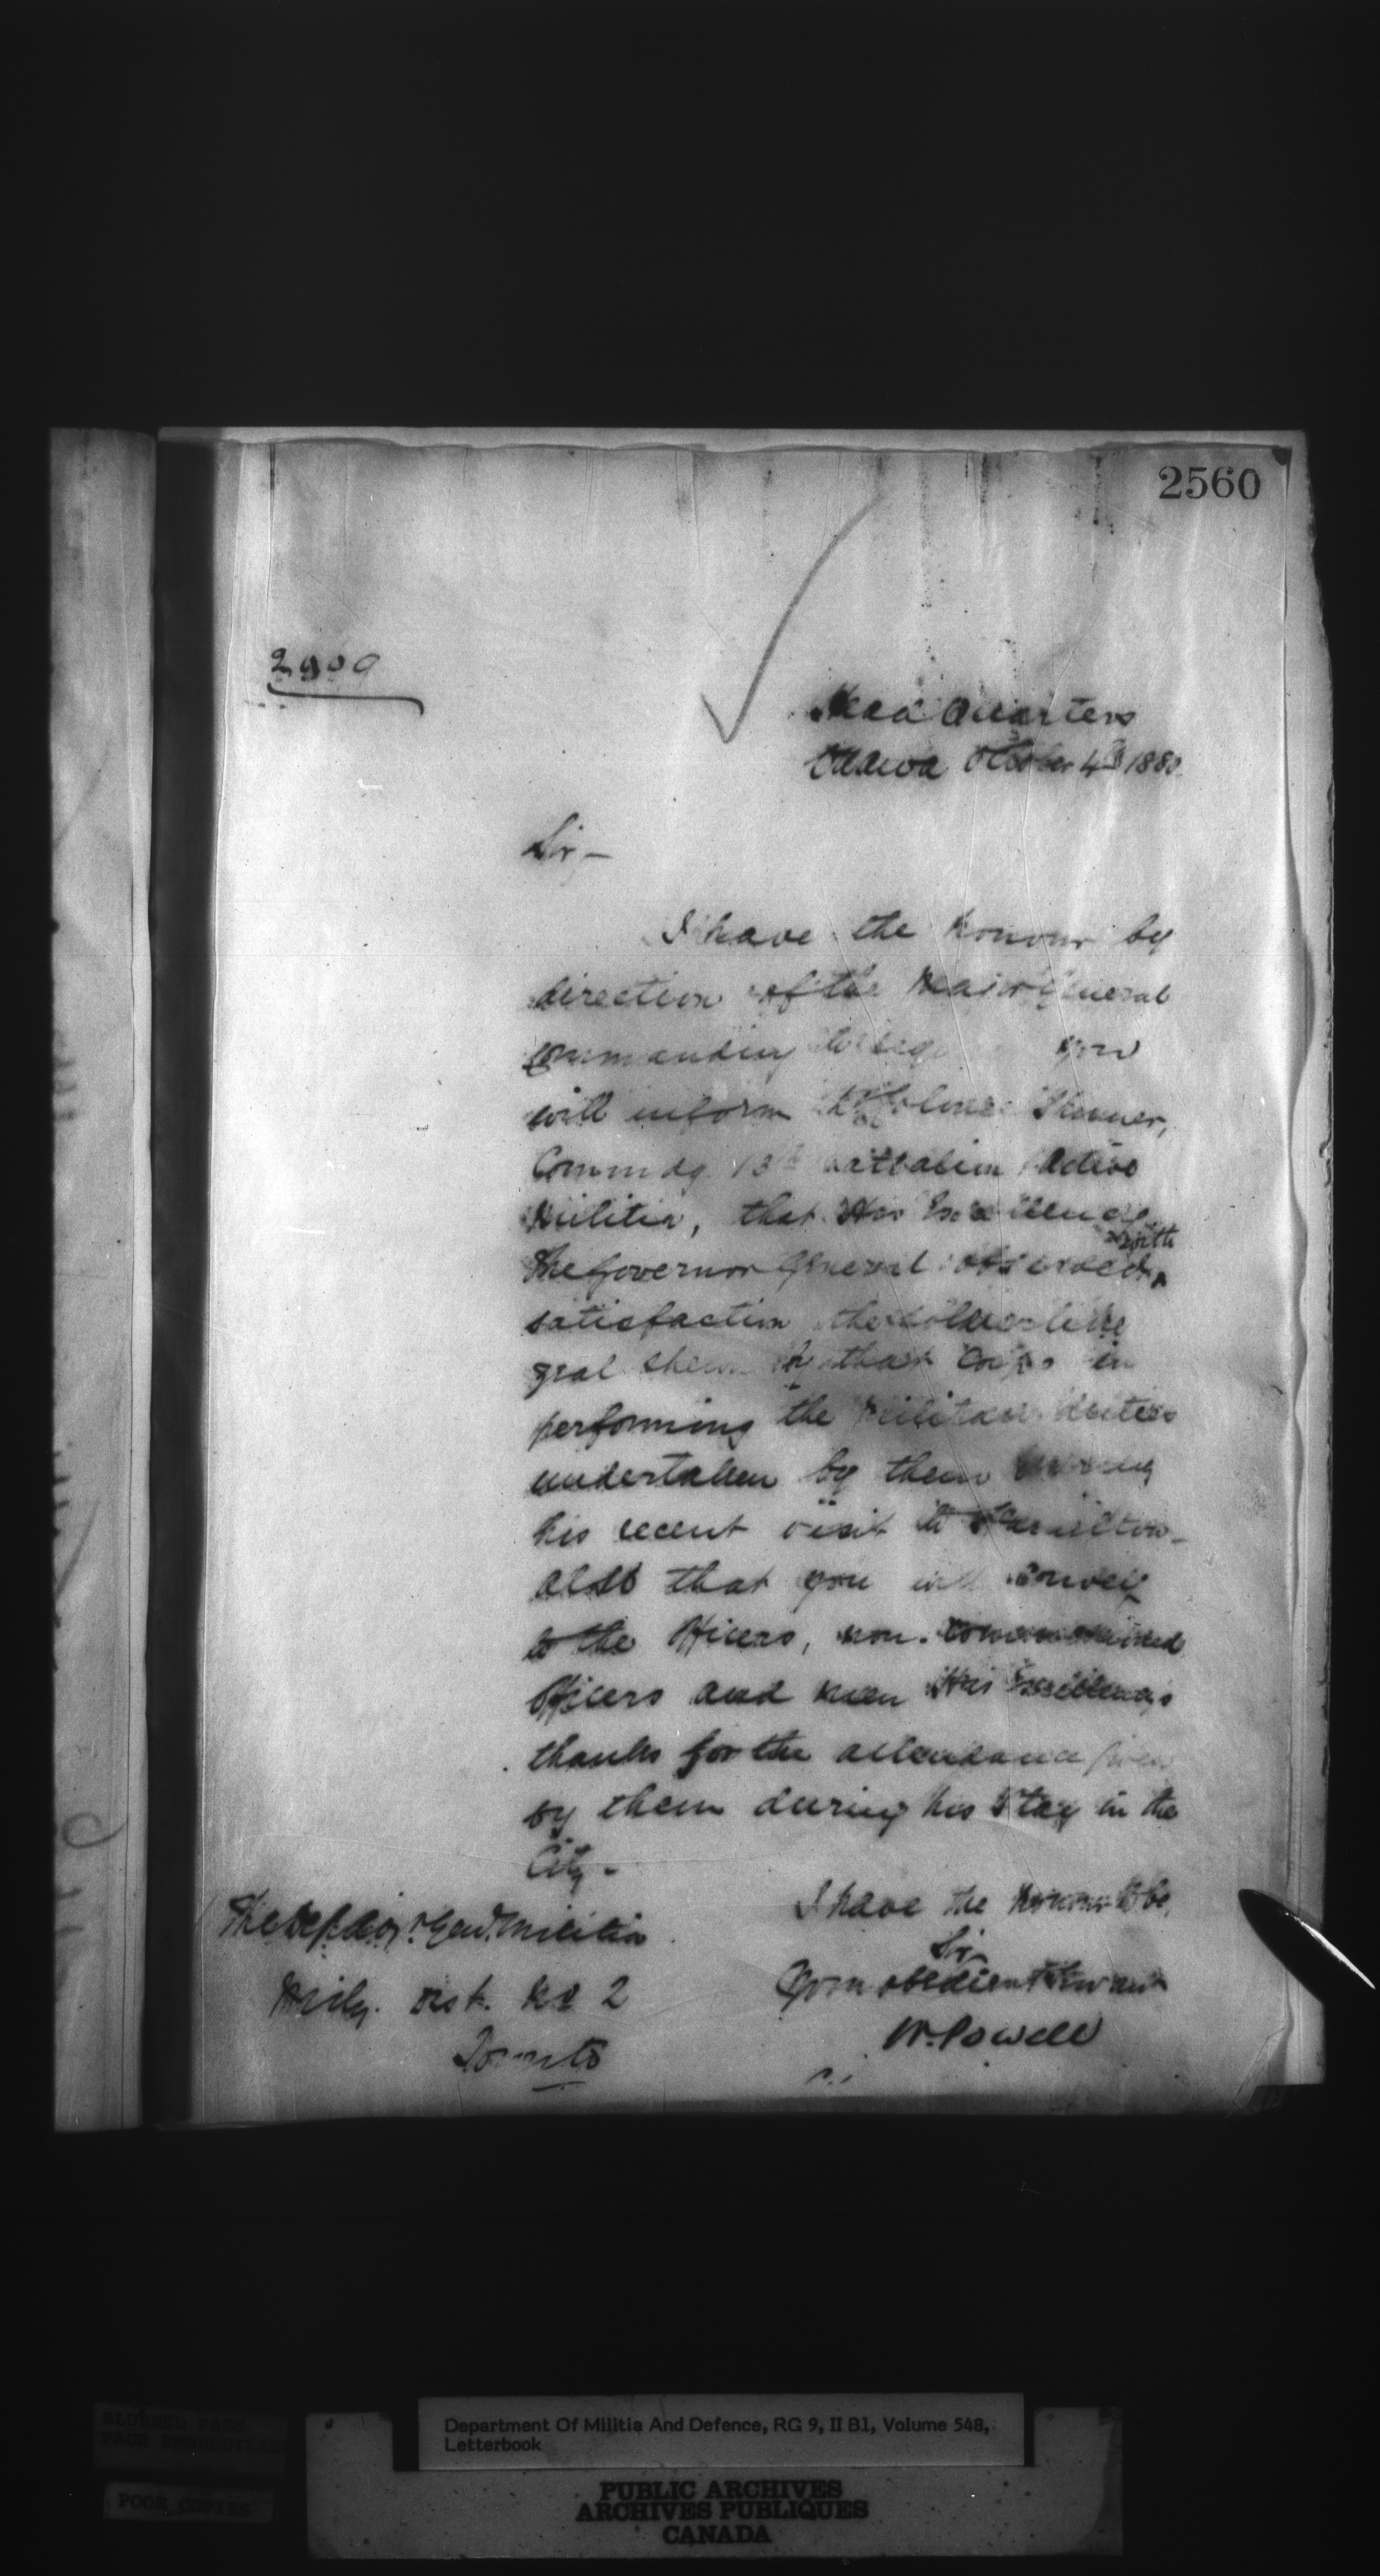 2560
Head Quarters
Ottawa October 4th 1880.
Sir –
I have the honour by
direction of the Major General
commanding to beg you
will inform Lt Colonel Skinner,
Commdg. 13th Battalion Active
Militia, that His Excellency
the Governor General observed with
satisfaction the soldierlike
zeal shewn by that Corps in
performing the Military duties
undertaken by them during
his recent visit to Hamilton –
also that you will convey
to the Officers, non-commissioned
Officers and men His Excellency's
thanks for the attendance given
by them during his stay in the
City –
I have the honour to be,
Sir –
Your obedient Servant
W. Powell
The Dep. Adjt. Genl. Militia
Mily. Dist. No 2
Toronto
Department Of Militia And Defence, RG 9, II B1, Volume 548,
Letterbook
BLURRED PAGE
PAGE EMBROUILLEE
POOR COPIES
PUBLIC ARCHIVES
ARCHIVES PUBLIQUES
CANADA